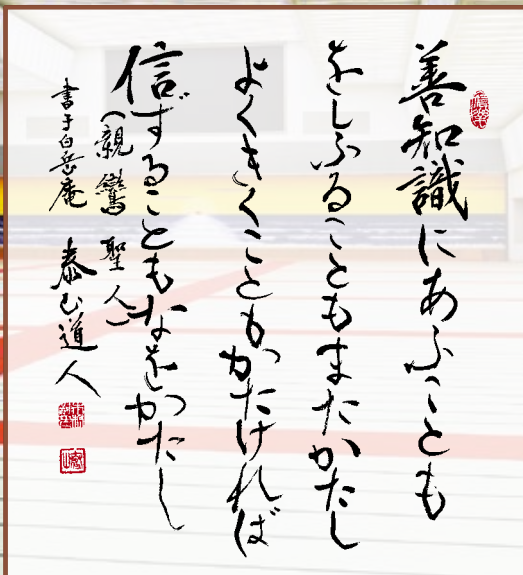 善知識にあふことも
をしふることもまたかたし
よくきくこともかたければ
信ずることもなをかたし
（親鸞聖人）
書于白岳庵 泰山道人